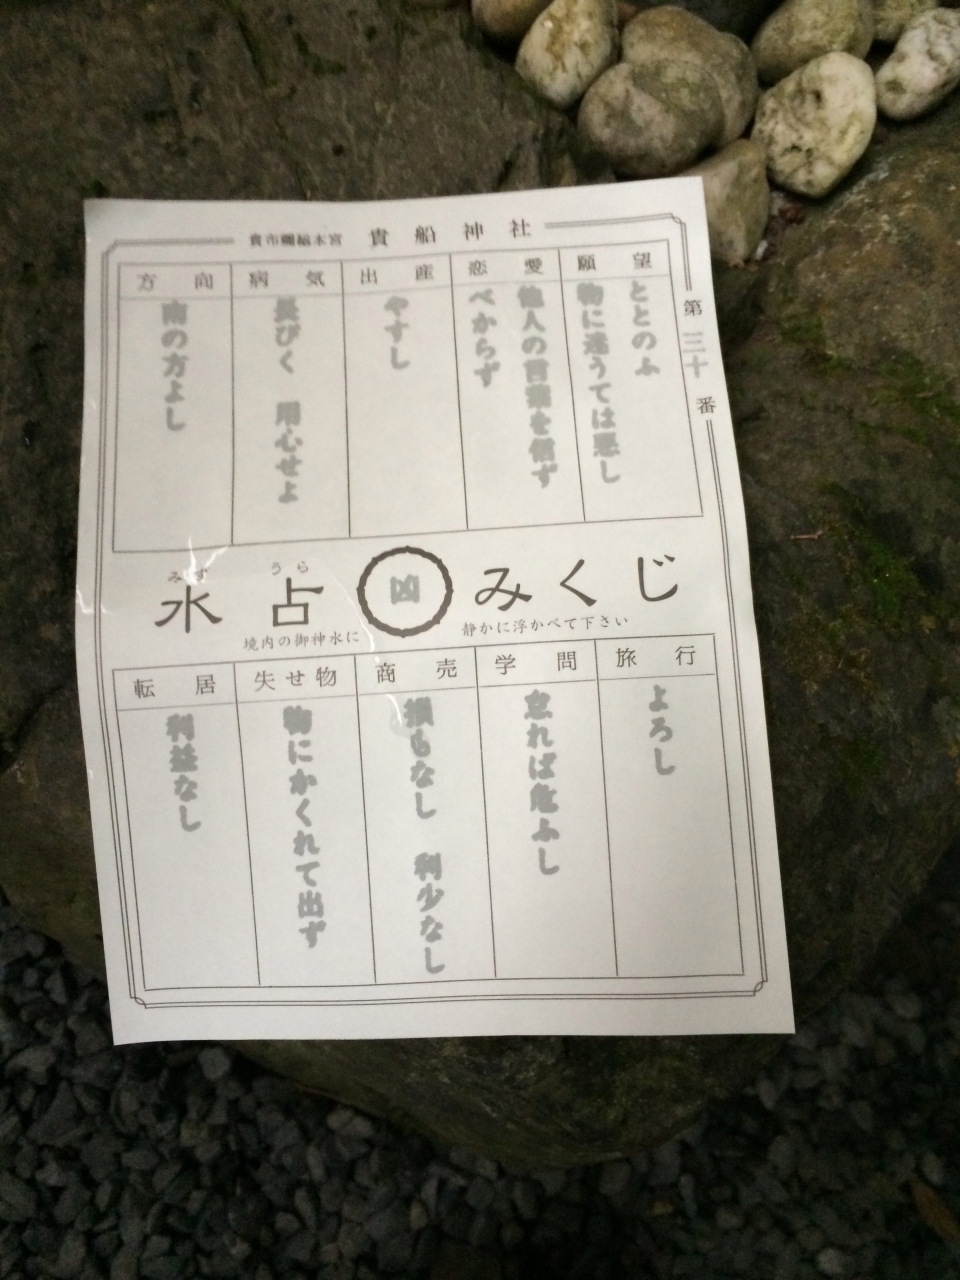 貴船神社
第三十番
願望
ととのふ
物に迷うては悪し
恋愛
他人の言葉を信ず
べからず
出産
やすし
病気
長びく 用心せよ
方向
南の方よし
みず うら
水占 凶 みくじ
境内の御神水に 静かに浮かべて下さい
旅行
よろし
学問
怠れば危ふし
商売
損もなし 利少なし
失せ物
物にかくれて出ず
転居
利益なし